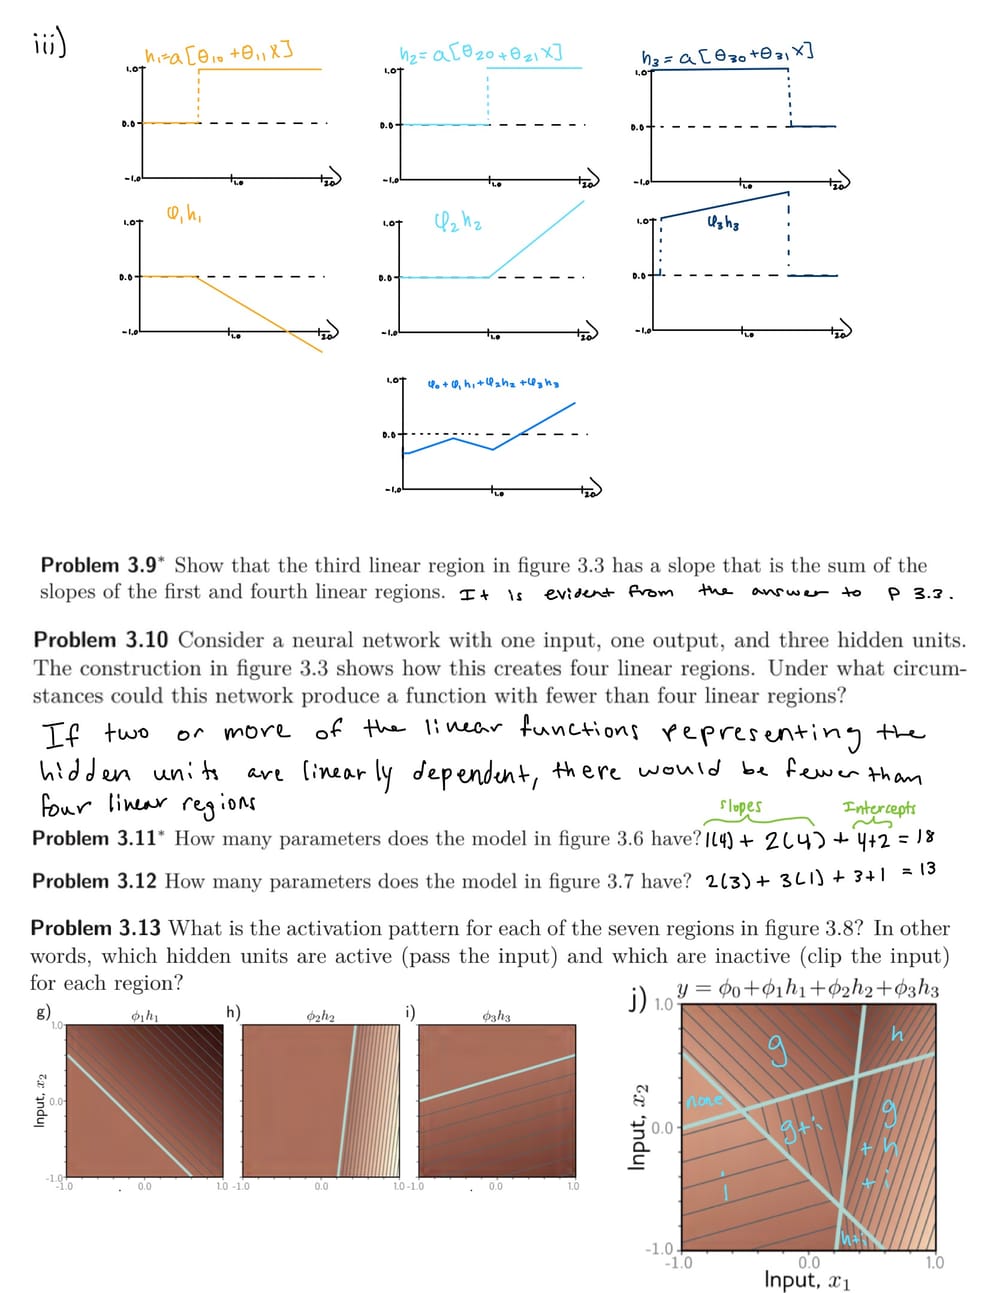 iii)
h₁=a[θ₁₀+θ₁₁X]
h₂=a[θ₂₀+θ₂₁X]
h₃=a[θ₃₀+θ₃₁X]
1.0
0.0
-1.0
1.0
2.0
1.0
0.0
-1.0
1.0
2.0
1.0
0.0
-1.0
1.0
2.0
φ₁h₁
φ₂h₂
φ₃h₃
1.0
0.0
-1.0
1.0
2.0
1.0
0.0
-1.0
1.0
2.0
1.0
0.0
-1.0
1.0
2.0
φ₀+φ₁h₁+φ₂h₂+φ₃h₃
1.0
0.0
-1.0
1.0
2.0
Problem 3.9* Show that the third linear region in figure 3.3 has a slope that is the sum of the
slopes of the first and fourth linear regions. It is evident from the answer to P 3.3.
Problem 3.10 Consider a neural network with one input, one output, and three hidden units.
The construction in figure 3.3 shows how this creates four linear regions. Under what circum-
stances could this network produce a function with fewer than four linear regions?
If two or more of the linear functions representing the
hidden units are linearly dependent, there would be fewer than
four linear regions
slopes Intercepts
Problem 3.11* How many parameters does the model in figure 3.6 have? 1(4) + 2(4) + 4+2 = 18
Problem 3.12 How many parameters does the model in figure 3.7 have? 2(3) + 3(1) + 3+1 = 13
Problem 3.13 What is the activation pattern for each of the seven regions in figure 3.8? In other
words, which hidden units are active (pass the input) and which are inactive (clip the input)
for each region?
g) ϕ₁h₁
h) ϕ₂h₂
i) ϕ₃h₃
j) y = ϕ₀+ϕ₁h₁+ϕ₂h₂+ϕ₃h₃
Input, x₂
1.0
0.0
-1.0
-1.0 0.0 1.0
-1.0 0.0 1.0
-1.0 0.0 1.0
Input, x₂
1.0
0.0
-1.0
g
h
none
g+i
g
+ h
+ i
i
h+i
-1.0 0.0 1.0
Input, x₁